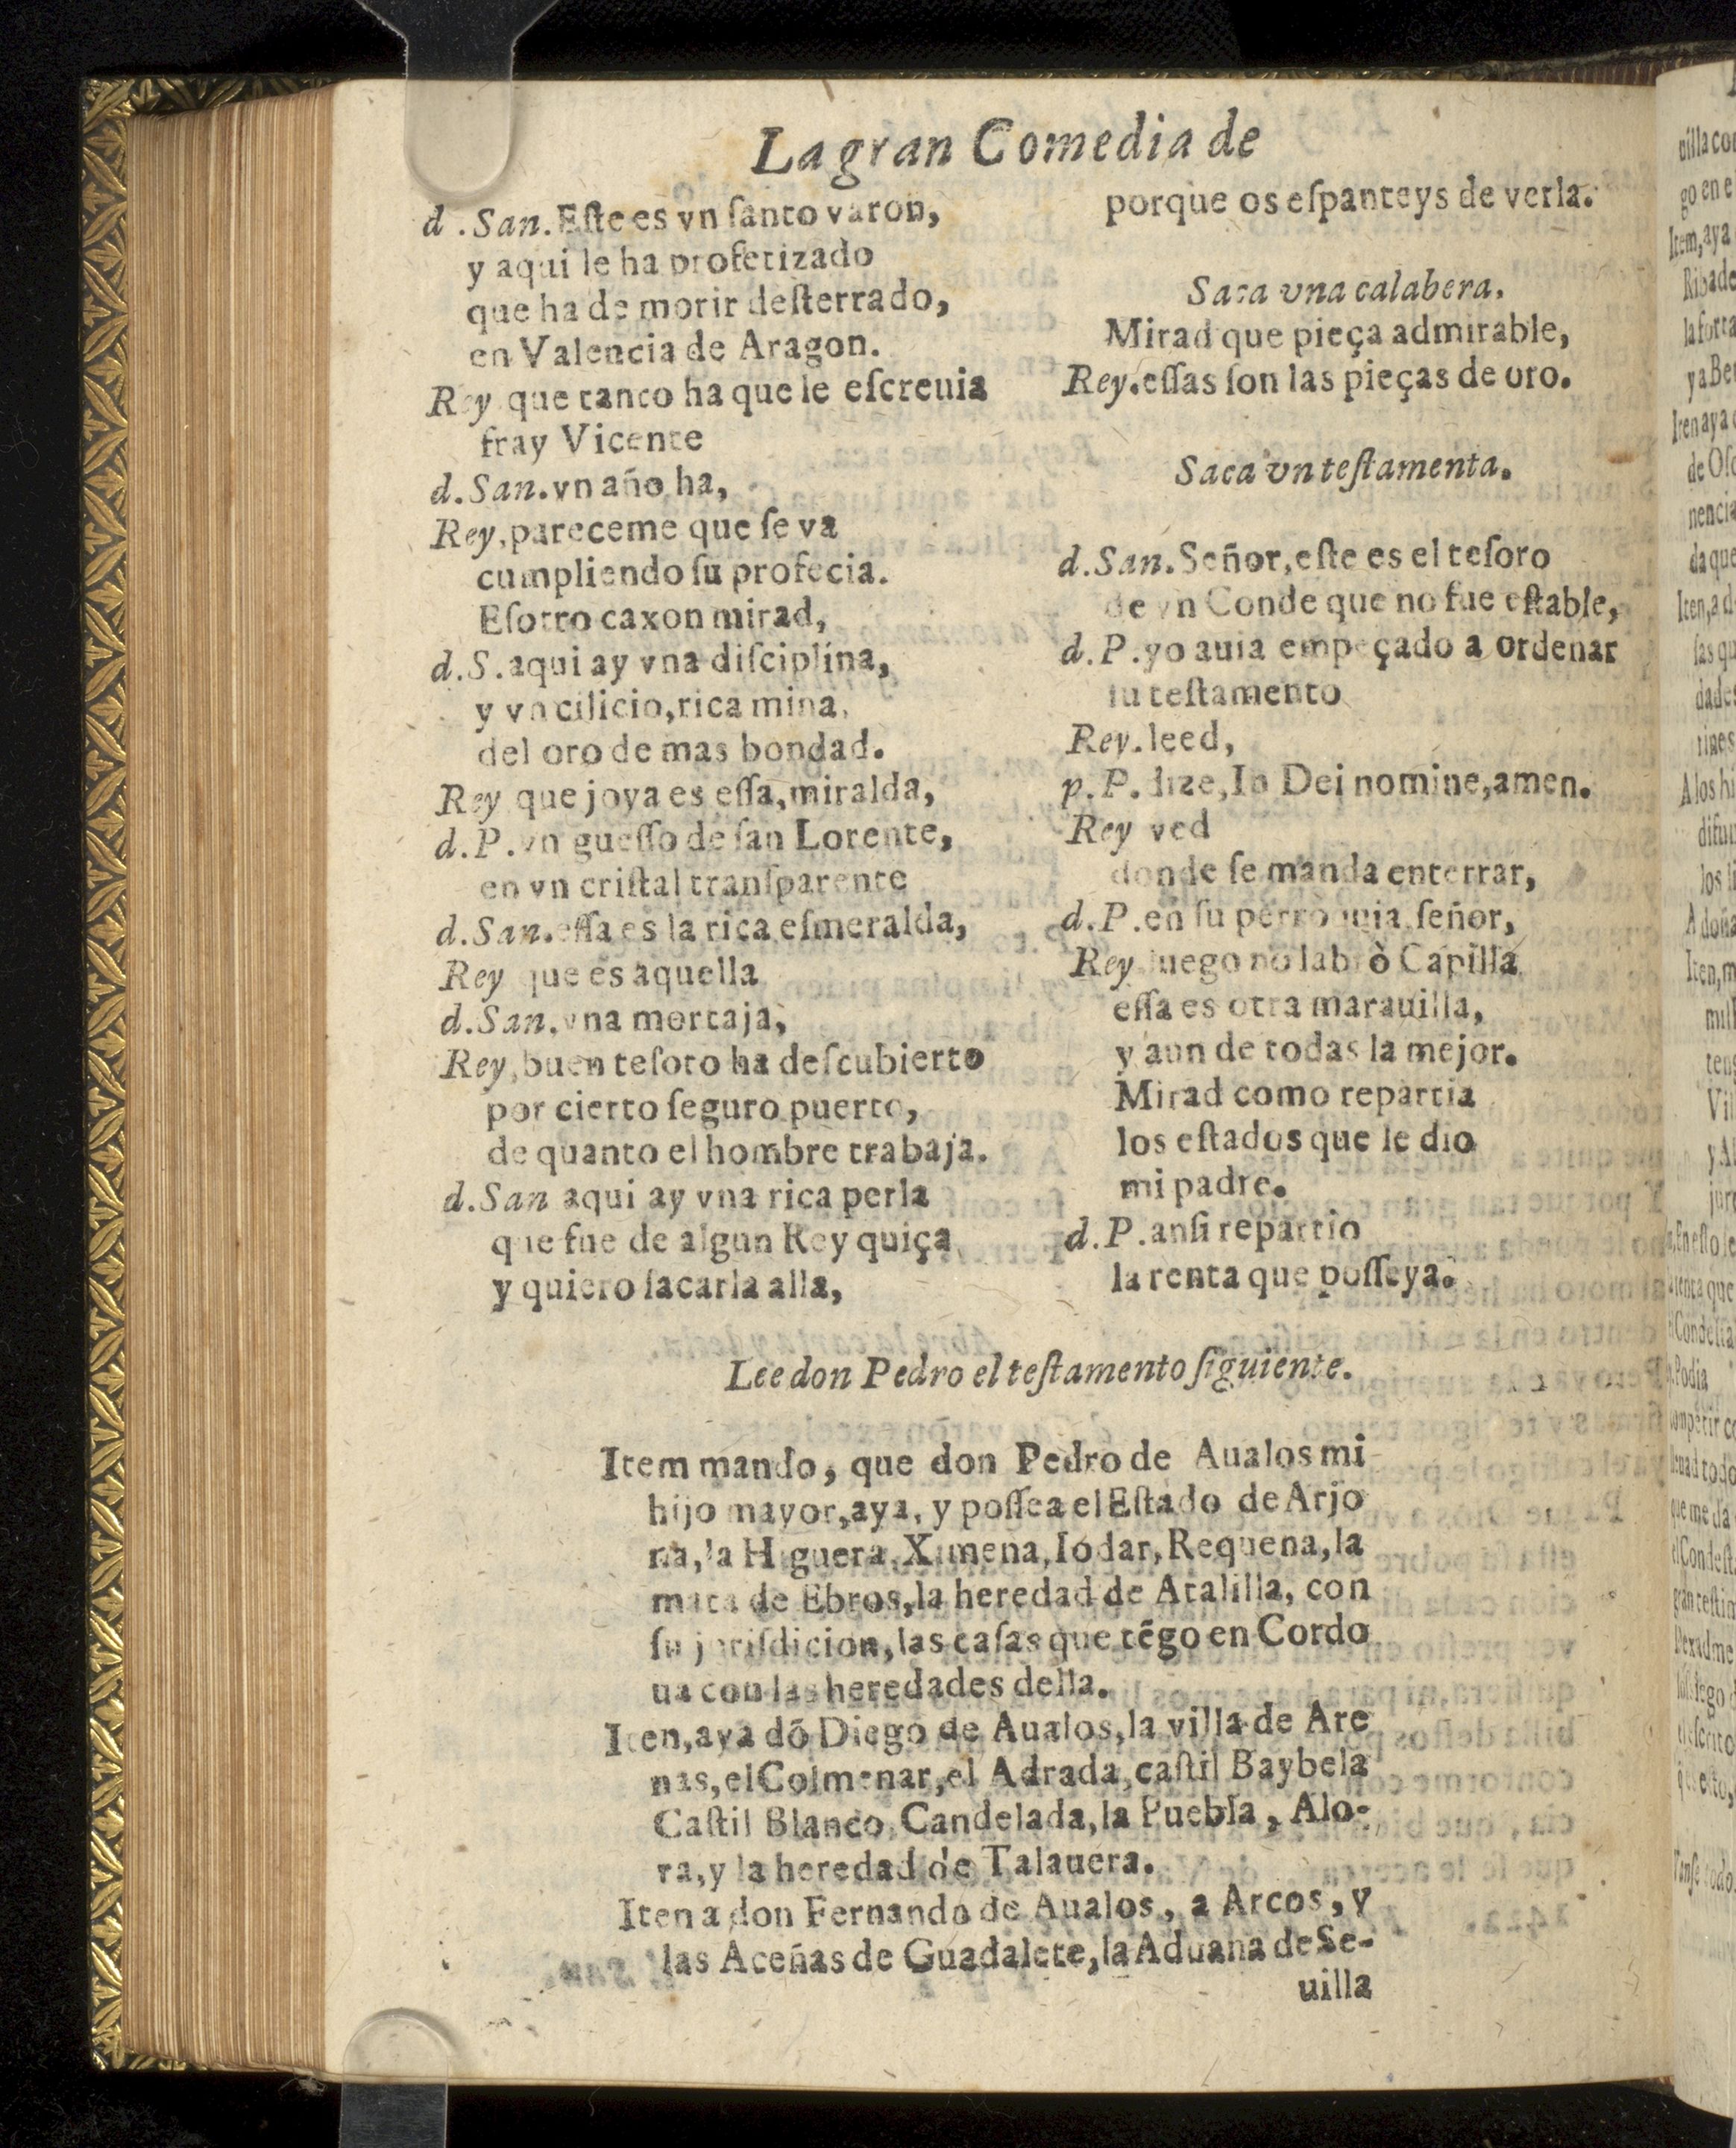 La gran Comedia de
d.San.Eſte es vn ſanto varon,
y aqui le ha profetizado
que ha de morir deſterrado,
en Valencia de Aragon.
Rey que tanto ha que le eſcreuia
fray Vicente
d.San.vn año ha,
Rey,pareceme que ſe va
cumpliendo ſu profecia.
Eſotro caxon mirad,
d.S.aqui ay vna diſciplina,
y vn cilicio,rica mina,
del oro de mas bondad.
Rey que joya es eſſa,miralda,
d.P.vn gueſſo de ſan Lorente,
en vn criſtal tranſparente
d.San.eſſa es la rica eſmeralda,
Rey que es aquella
d.San.vna mortaja,
Rey,buen teſoro ha deſcubierto
por cierto ſeguro puerto,
de quanto el hombre trabaja.
d.San aqui ay vna rica perla
que fue de algun Rey quiça
y quiero ſacarla alla,
porque os eſpanteys de verla.
Saca vna calabera.
Mirad que pieça admirable,
Rey.eſſas ſon las pieças de oro.
Saca vn teſtamenta.
d.San.Señor,eſte es el teſoro
de vn Conde que no fue eſtable,
d.P.yo auia empeçado a ordenar
ſu teſtamento
Rey.leed,
p.P.dize,In Dei nomine,amen.
Rey ved
donde ſe manda enterrar,
d.P.en ſu perroquia ſeñor,
Rey luego no labrò Capilla
eſſa es otra marauilla,
y aun de todas la mejor.
Mirad como repartia
los eſtados que le dio
mi padre.
d.P.anſi repartio
la renta que poſſeya.
Lee don Pedro el teſtamento ſiguiente.
Item mando, que don Pedro de Aualos mi
hijo mayor,aya, y poſſea el Eſtado de Arjo
na,la Higuera,Ximena,Iodar,Requena,la
mata de Ebros,la heredad de Atalilla, con
ſu juriſdicion,las caſas que tẽgo en Cordo
ua con las heredades della.
Iten,aya dõ Diego de Aualos,la villa de Are
nas,el Colmenar,el Adrada,caſtil Baybela
Caſtil Blanco,Candelada,la Puebla, Alo-
ra,y la heredad de Talauera.
Iten a don Fernando de Aualos, a Arcos, y
las Aceñas de Guadalete,la Aduana de Se-
uilla